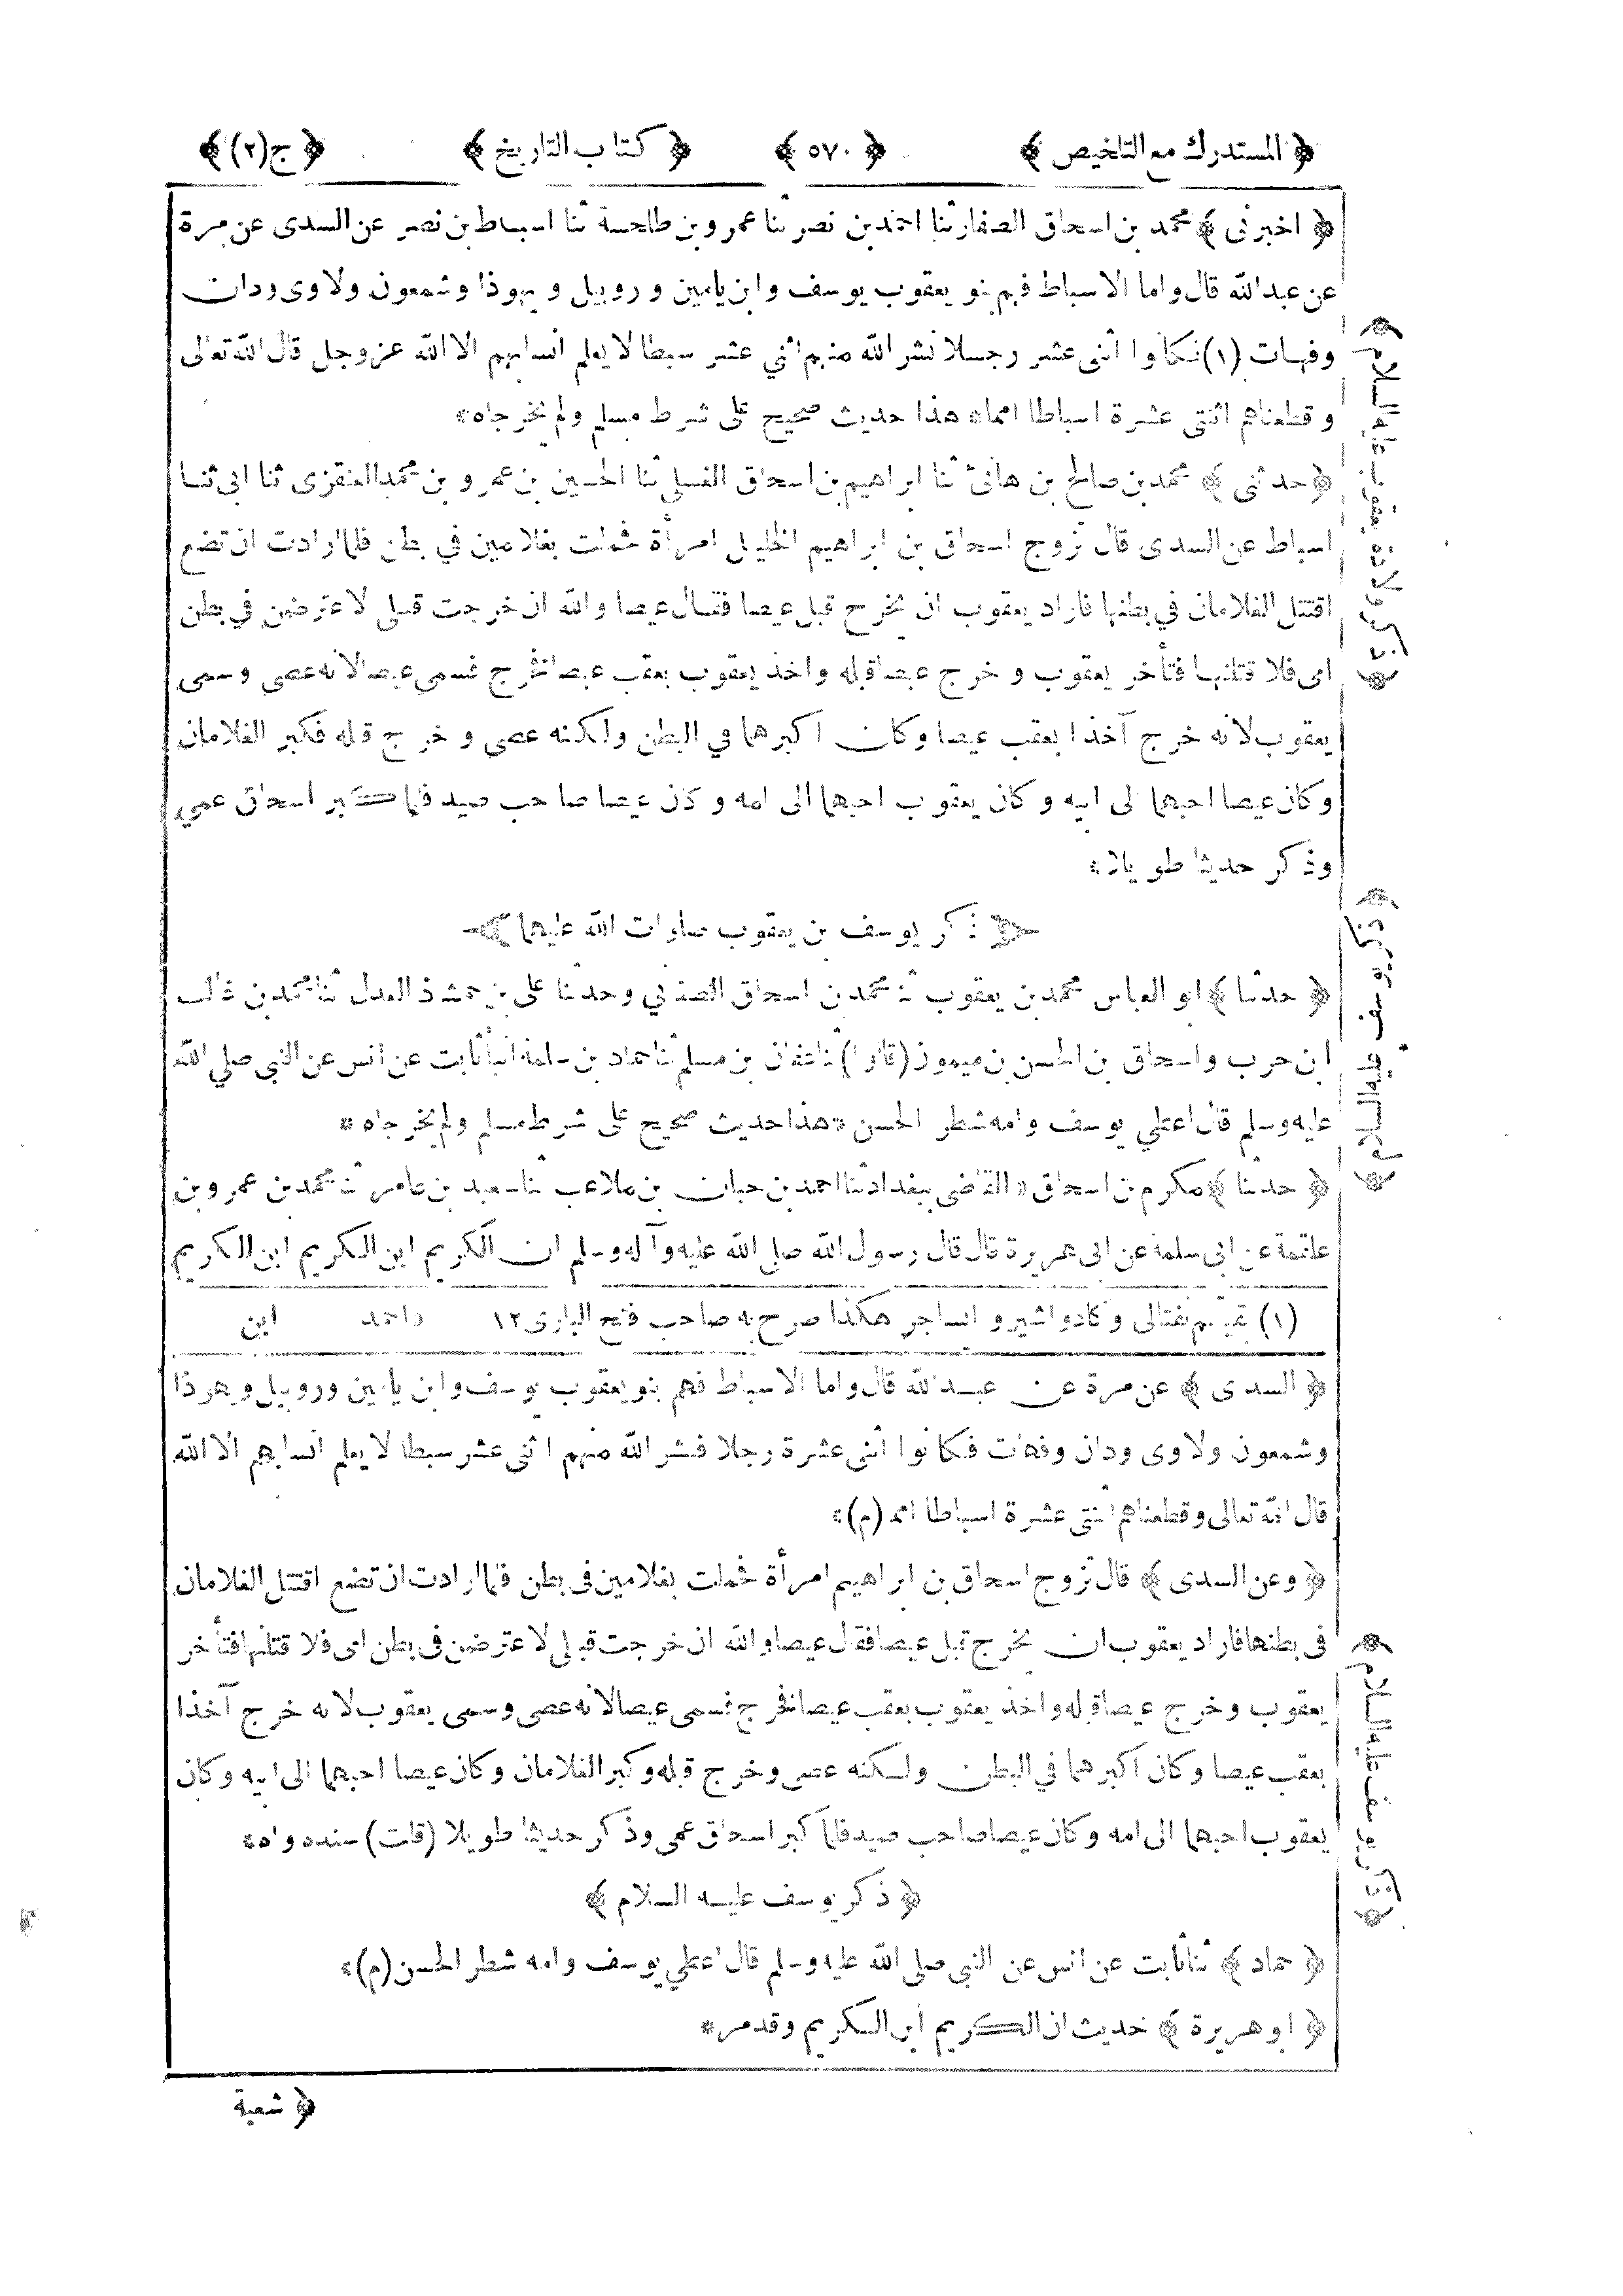 ﴿ المستدرك مع التلخيص ﴾ ﴿ ٥٧٠ ﴾ ﴿ كتاب التاريخ ﴾ ﴿ ج (٢) ﴾
﴿ اخبرنى ﴾ محمد بن اسحاق الصفار ثنا احمد بن نصر ثنا عمرو بن طلحة ثنا اسباط بن نصر عن السدى عن مرة
عن عبد الله قال واما الاسباط فهم بنو يعقوب يوسف وابن يامين وروبيل ويهوذا وشمعون ولاوى ودان
وفهات (١) فكانوا اثنى عشر رجلا نشر الله منهم اثني عشر سبطا لا يعلم انسابهم الا الله عز وجل قال الله تعالى
وقطعناهم اثنتى عشرة اسباطا امما * هذا حديث صحيح على شرط مسلم ولم يخرجاه *
﴿ حدثنى ﴾ محمد بن صالح بن هانئ ثنا ابراهيم بن اسحاق الغسيلى ثنا الحسين بن عمرو بن محمد العنقزى ثنا ابى ثنا
اسباط عن السدى قال تزوج اسحاق بن ابراهيم الخليل امرأة فحملت بغلامين في بطن فلما ارادت ان تضع
اقتتل الغلامان في بطنها فاراد يعقوب ان يخرج قبل عيصا فقال عيصا والله ان خرجت قبلى لاعترضن في بطن
امى فلا قتلنها فتأخر يعقوب وخرج عيصا قبله واخذ يعقوب بعقب عيصا فخرج فسمى عيصا لانه عصى وسمى
يعقوب لانه خرج آخذا بعقب عيصا وكان اكبرهما في البطن ولكنه عصى وخرج قبله فكبر الغلامان
وكان عيصا احبهما الى ابيه وكان يعقوب احبهما الى امه وكان عيصا صاحب صيد فلما كبر اسحاق عمي
وذكر حديثا طويلا *
ذكر يوسف بن يعقوب صلوات الله عليهما
﴿ حدثنا ﴾ ابو العباس محمد بن يعقوب ثنا محمد بن اسحاق الصغاني وحدثنا على بن حمشاذ العدل ثنا محمد بن غالب
ابن حرب واسحاق بن الحسن بن ميمون (قالوا) ثنا عفان بن مسلم ثنا حماد بن سلمة انبأ ثابت عن انس عن النبى صلي الله
عليه وسلم قال اعطي يوسف وامه شطر الحسن * هذا حديث صحيح على شرط مسلم ولم يخرجاه *
﴿ حدثنا ﴾ مكرم بن اسحاق القاضى ببغداد ثنا احمد بن حبان بن ملاعب ثنا سعيد بن عامر ثنا محمد بن عمرو بن
علقمة عن ابى سلمة عن ابى هريرة قال قال رسول الله صلى الله عليه وآله وسلم ان الكريم ابن الكريم ابن الكريم
(١) بقيتهم نفتالى وكادو اشير و ايساجر هكذا صرح به صاحب فتح البارى ١٢ احمد ابن
﴿ السدى ﴾ عن مرة عن عبد الله قال واما الاسباط فهم بنو يعقوب يوسف وابن يامين وروبيل ويهوذا
وشمعون ولاوى ودان وفهات فكانوا اثنى عشرة رجلا فنشر الله منهم اثنى عشر سبطا لا يعلم انسابهم الا الله
قال الله تعالى وقطعناهم اثنتى عشرة اسباطا امما (م) *
﴿ وعن السدى ﴾ قال تزوج اسحاق بن ابراهيم امرأة فحملت بغلامين فى بطن فلما ارادت ان تضع اقتتل الغلامان
فى بطنها فاراد يعقوب ان يخرج قبل عيصا فقال عيصا والله ان خرجت قبلى لاعترضن فى بطن امى فلا قتلنها فتأخر
يعقوب وخرج عيصا قبله واخذ يعقوب بعقب عيصا فخرج فسمى عيصا لانه عصى وسمى يعقوب لانه خرج آخذا
بعقب عيصا وكان اكبرهما في البطن ولكنه عصى وخرج قبله وكبر الغلامان وكان عيصا احبهما الى ابيه وكان
يعقوب احبهما الى امه وكان عيصا صاحب صيد فلما كبر اسحاق عمى وذكر حديثا طويلا (قلت) سنده واه *
﴿ ذكر يوسف عليه السلام ﴾
﴿ حماد ﴾ ثنا ثابت عن انس عن النبى صلى الله عليه وسلم قال اعطي يوسف وامه شطر الحسن (م) *
﴿ ابو هريرة ﴾ حديث ان الكريم ابن الكريم وقد مر *
﴿ شعبة
﴿ ذكر ولادة يعقوب عليه السلام ﴾
﴿ ذكر يوسف عليه السلام ﴾
﴿ ذكر يوسف عليه السلام ﴾